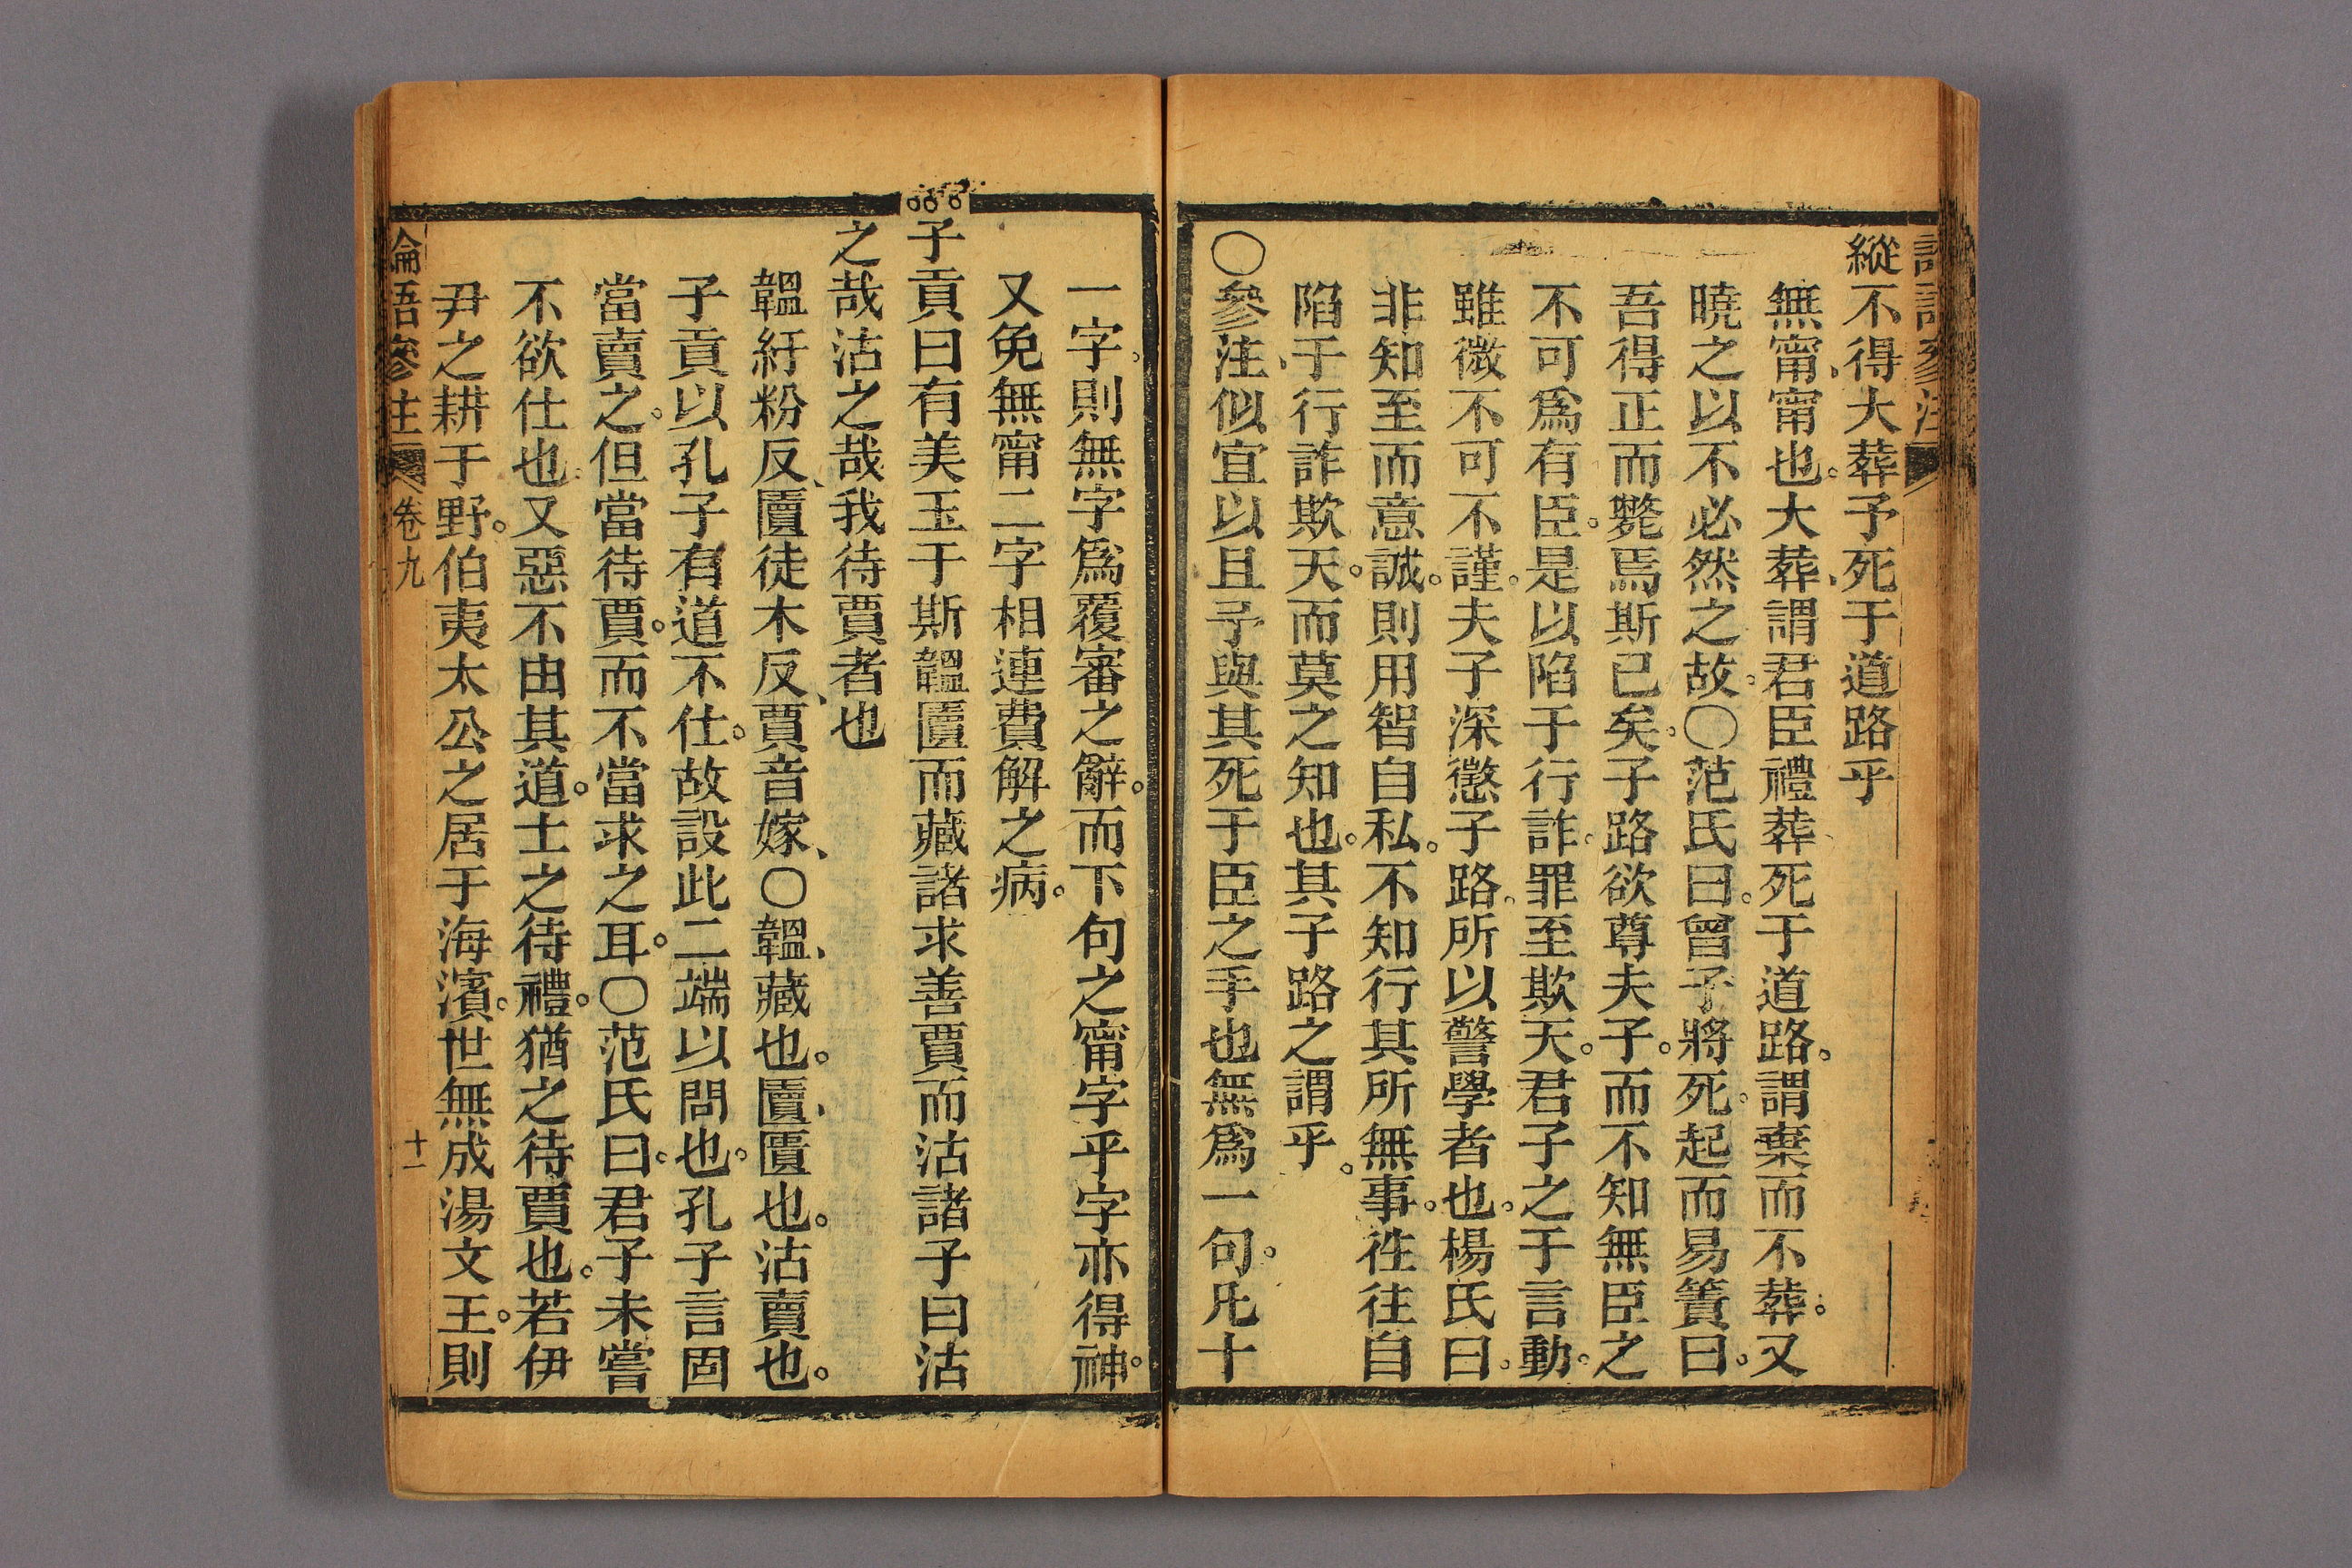 縱不得大葬予死于道路乎
無甯、甯也。大葬、謂君臣禮葬、死于道路。謂棄而不葬。又
曉之以不必然之故。〇范氏曰。曾子將死。起而易簀曰。
吾得正而斃焉斯已矣。子路欲尊夫子。而不知無臣之
不可爲有臣。是以陷于行詐。罪至欺天。君子之于言動。
雖微不可不謹。夫子深懲子路。所以警學者也。楊氏曰。
非知至而意誠。則用智自私。不知行其所無事。徃往自
陷于行詐欺天。而莫之知也。其子路之謂乎。
〇參注、似宜以且予與其死于臣之手也無爲一句。凡十
一字。則無字爲覆審之辭。而下句之甯字乎字亦得神。
又免無甯二字相連費解之病。
子貢曰有美玉于斯韞匵而藏諸求善賈而沽諸子曰沽
之哉沽之哉我待賈者也
韞紆粉反、匵徒木反、賈音嫁、〇韞、藏也。匵、匱也。沽賣也。
子貢以孔子有道不仕。故設此二端以問也。孔子言固
當賣之。但當待賈。而不當求之耳。〇范氏曰。君子未嘗
不欲仕也。又惡不由其道。士之待禮。猶之待賈也。若伊
尹之耕于野。伯夷太公之居于海濱。世無成湯文王。則
論語參注 卷九 十一